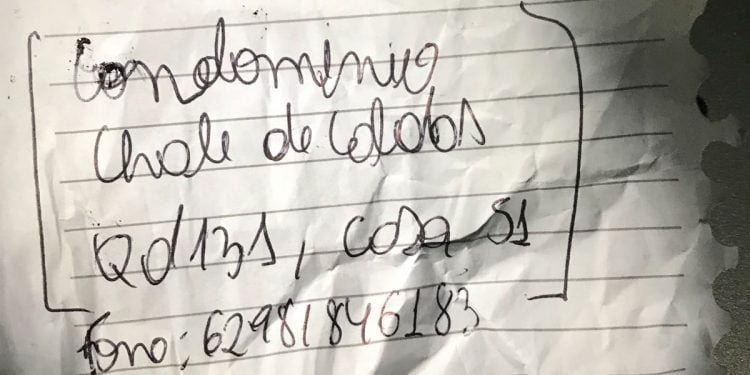 Condominio
Chale de Coldas
Qd 131, casa 51
fono: 62981846183